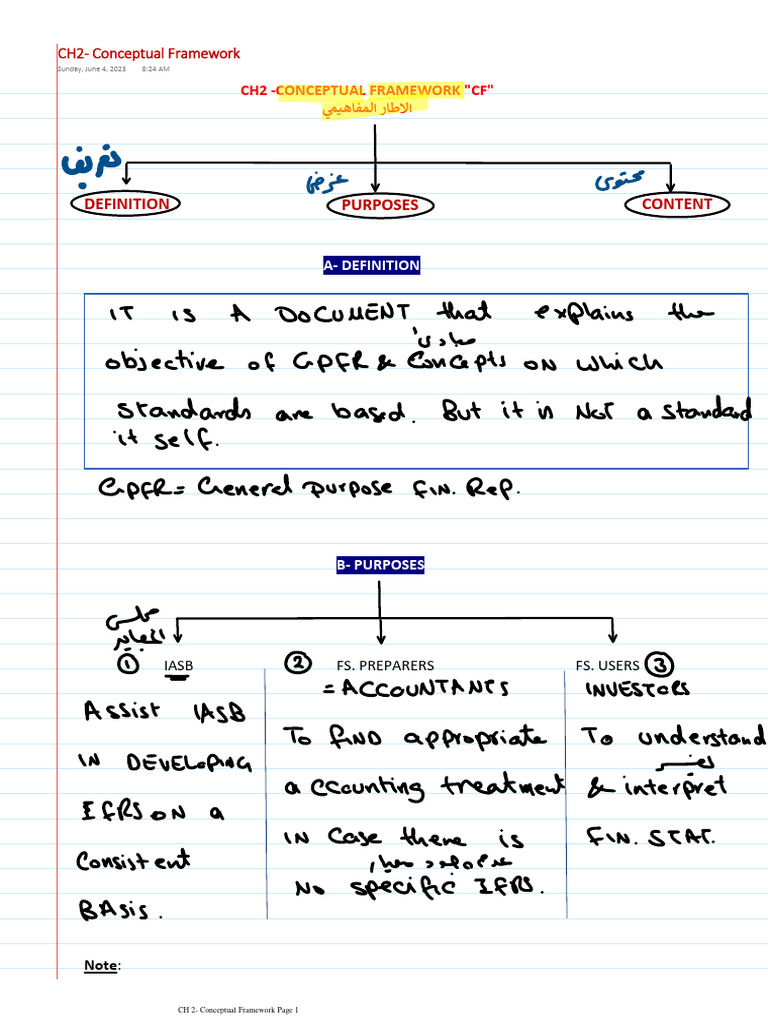 CH2- Conceptual Framework
Sunday, June 4, 2023 8:24 AM
CH2 -CONCEPTUAL FRAMEWORK "CF"
الاطار المفاهيمي
تعريف
غرض
محتوى
DEFINITION PURPOSES CONTENT
A- DEFINITION
IT IS A DOCUMENT that explains the
مبادئ
objective of GPFR & Concepts ON WHICH
standards are based. But it is NOT a standard
it self.
GPFR = General purpose FIN. REP.
B- PURPOSES
مجلس
المعايير
① IASB ② FS. PREPARERS FS. USERS ③
= ACCOUNTANTS INVESTORS
Assist IASB
IN DEVELOPING
IFRS ON a
Consistent
BAsis.
To FIND appropriate
accounting treatment
IN Case there is
عدم وجود معيار
No specific IFRS.
To understand
تفسير
& interpret
FIN. STAT.
Note:
CH 2- Conceptual Framework Page 1